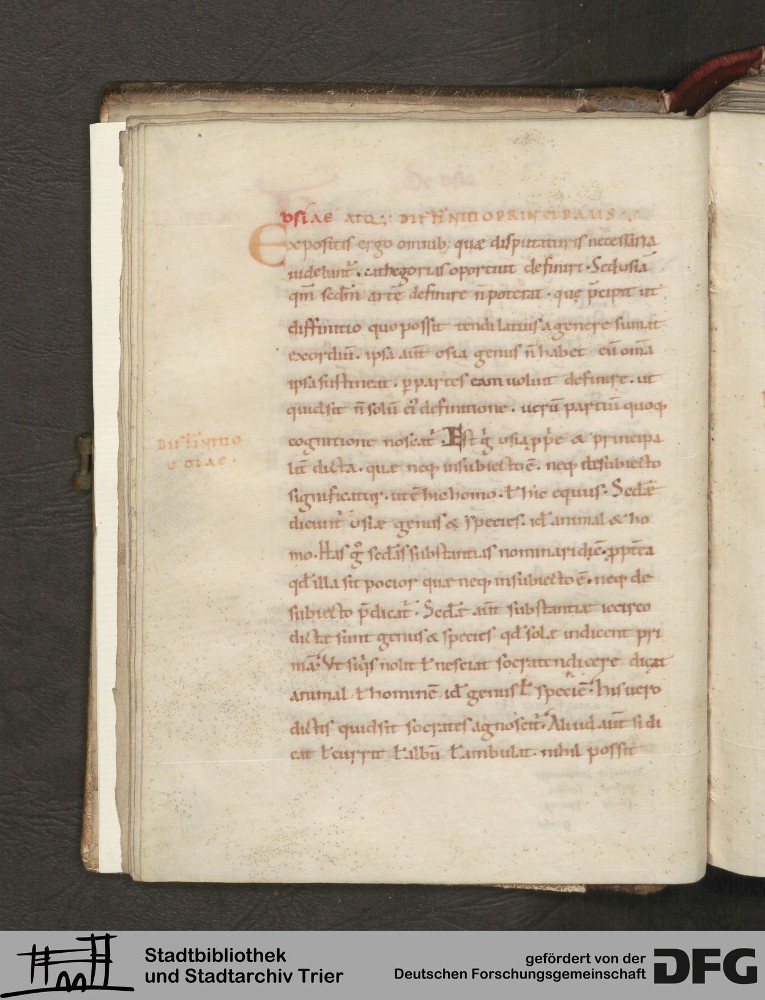 De usia
VSIAE ATQ; DIFFINITIO PRINCIPALIS
Expositis ergo omnib; quæ disputaturis necessaria
uidebant̃. cathegorias oportuit definiri. Sed usiã
qm̃ scdm̃ artẽ definire ñ poterat. que p̃cipit ut
diffinitio quo possit tendi latius a genere sumat
exordiũ. ipsa aũt usia genus ñ habet cũ om̃a
ipsa sustineat. p partes eam uoluit definire. ut
quid sit ñ solũ ei definitione. uerũ partiũ quoq
cognitione noscat̃. Est g usia pp̃e & principa
lit̃ dicta. quæ neq; in subiecto ẽ. neq; de subiecto
significatur. ut ẽ hic homo. ł hic equus. Scdæ
dicunt̃ usiæ genus & species. id ̃ animal & ho
mo. Has g scdas substantias nominari dic̃. ppt̃ea
qd̃ illa sit pocior quæ neq; in subiecto ẽ. neq; de
subiecto p̃dicat̃. Scdæ aũt substantiæ iccirco
dictæ sunt genus & species qd̃ solæ indicent pri
mã. Vt siq̃s nolit ł nesciat socraten dicere dicat
animal ł hominẽ id ̃ genus ł speciẽ. his uero
dictis quid sit socrates agnoscit̃. Aliud aũt si di
cat ł currit ł albũ ł ambulat. nihil possit
DIFFINITIO
USIAE.
Stadtbibliothek
und Stadtarchiv Trier
gefördert von der
Deutschen Forschungsgemeinschaft
DFG